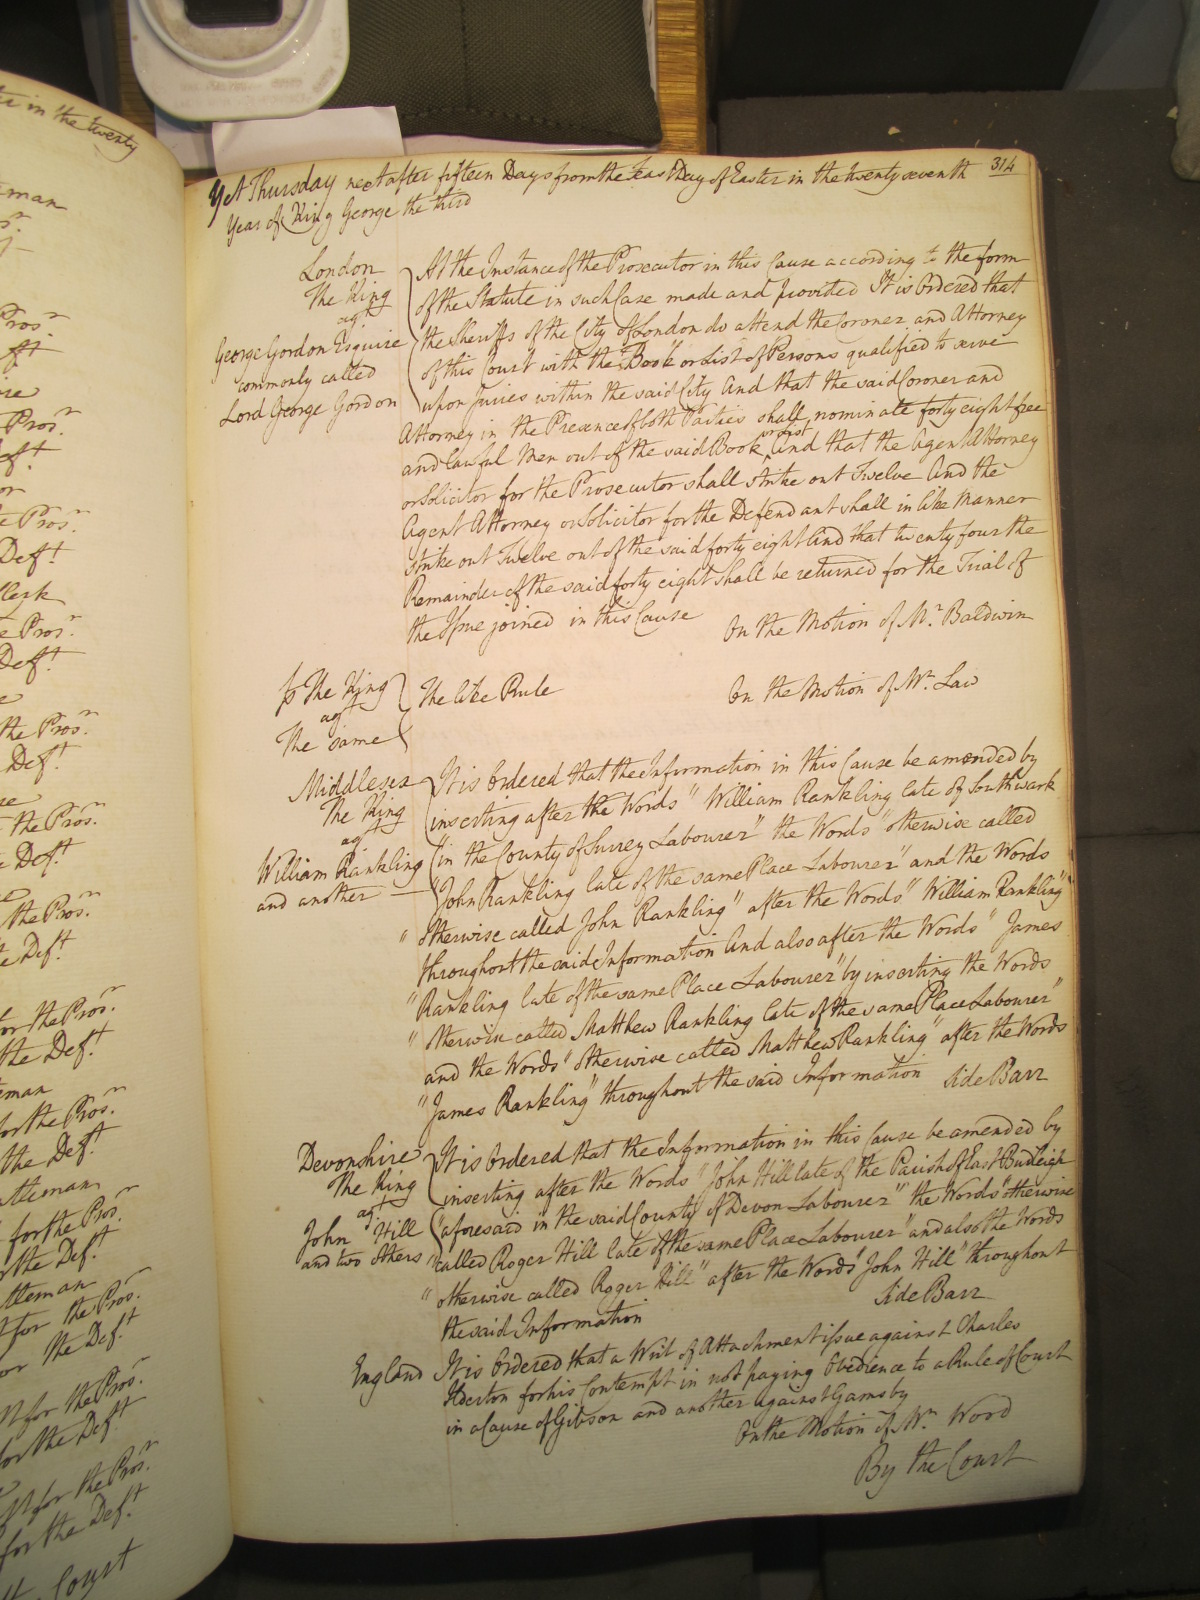 314
Yet Thursday next after fifteen Days from the Feast Day of Easter in the twenty seventh
Year of King George the third
London
The King
agt
George Gordon Esquire
commonly called
Lord George Gordon
At the Instance of the Prosecutor in this Cause according to the form
of the Statute in such Case made and provided It is Ordered that
the Sheriffs of the City of London do attend the Coroner and Attorney
of this Court with the Book or List of Persons qualified to serve
upon Juries within the said City And that the said Coroner and
Attorney in the Presence of both Parties shall nominate forty eight free
and Lawful Men out of the said Book or List And that the Agent Attorney
or Solicitor for the Prosecutor shall strike out Twelve And the
Agent Attorney or Solicitor for the Defendant shall in like Manner
strike out Twelve out of the said forty eight And that twenty four the
Remainder of the said forty eight shall be returned for the Trial of
the Issue joined in this Cause On the Motion of Mr. Baldwin
The King
agt
The same
The like Rule On the Motion of Mr. Law
Middlesex
The King
agt
William Rankling
and another
It is Ordered that the Information in this Cause be amended by
inserting after the Words "William Rankling late of Southwark
in the County of Surrey Labourer" the Words "otherwise called
"John Rankling late of the same Place Labourer" and the Words
"otherwise called John Rankling" after the Words "William Rankling"
throughout the said Information And also after the Words "James
"Rankling late of the same Place Labourer" by inserting the Words
"otherwise called Matthew Rankling late of the same Place Labourer"
and the Words "otherwise called Matthew Rankling" after the Words
"James Rankling" throughout the said Information Side Barr
Devonshire
The King
agt
John Hill
and two others
It is Ordered that the Information in this Cause be amended by
inserting after the Words "John Hill late of the Parish of East Budleigh
"aforesaid in the said County of Devon Labourer" the Words "otherwise
"called Roger Hill late of the same Place Labourer" and also the Words
"otherwise called Roger Hill" after the Words "John Hill" throughout
the said Information Side Barr
England It is Ordered that a Writ of Attachment issue against Charles
Ilderton for his Contempt in not paying Obedience to a Rule of Court
in a Cause of Gibson and another against Gamsby
On the Motion of Mr. Word
By the Court